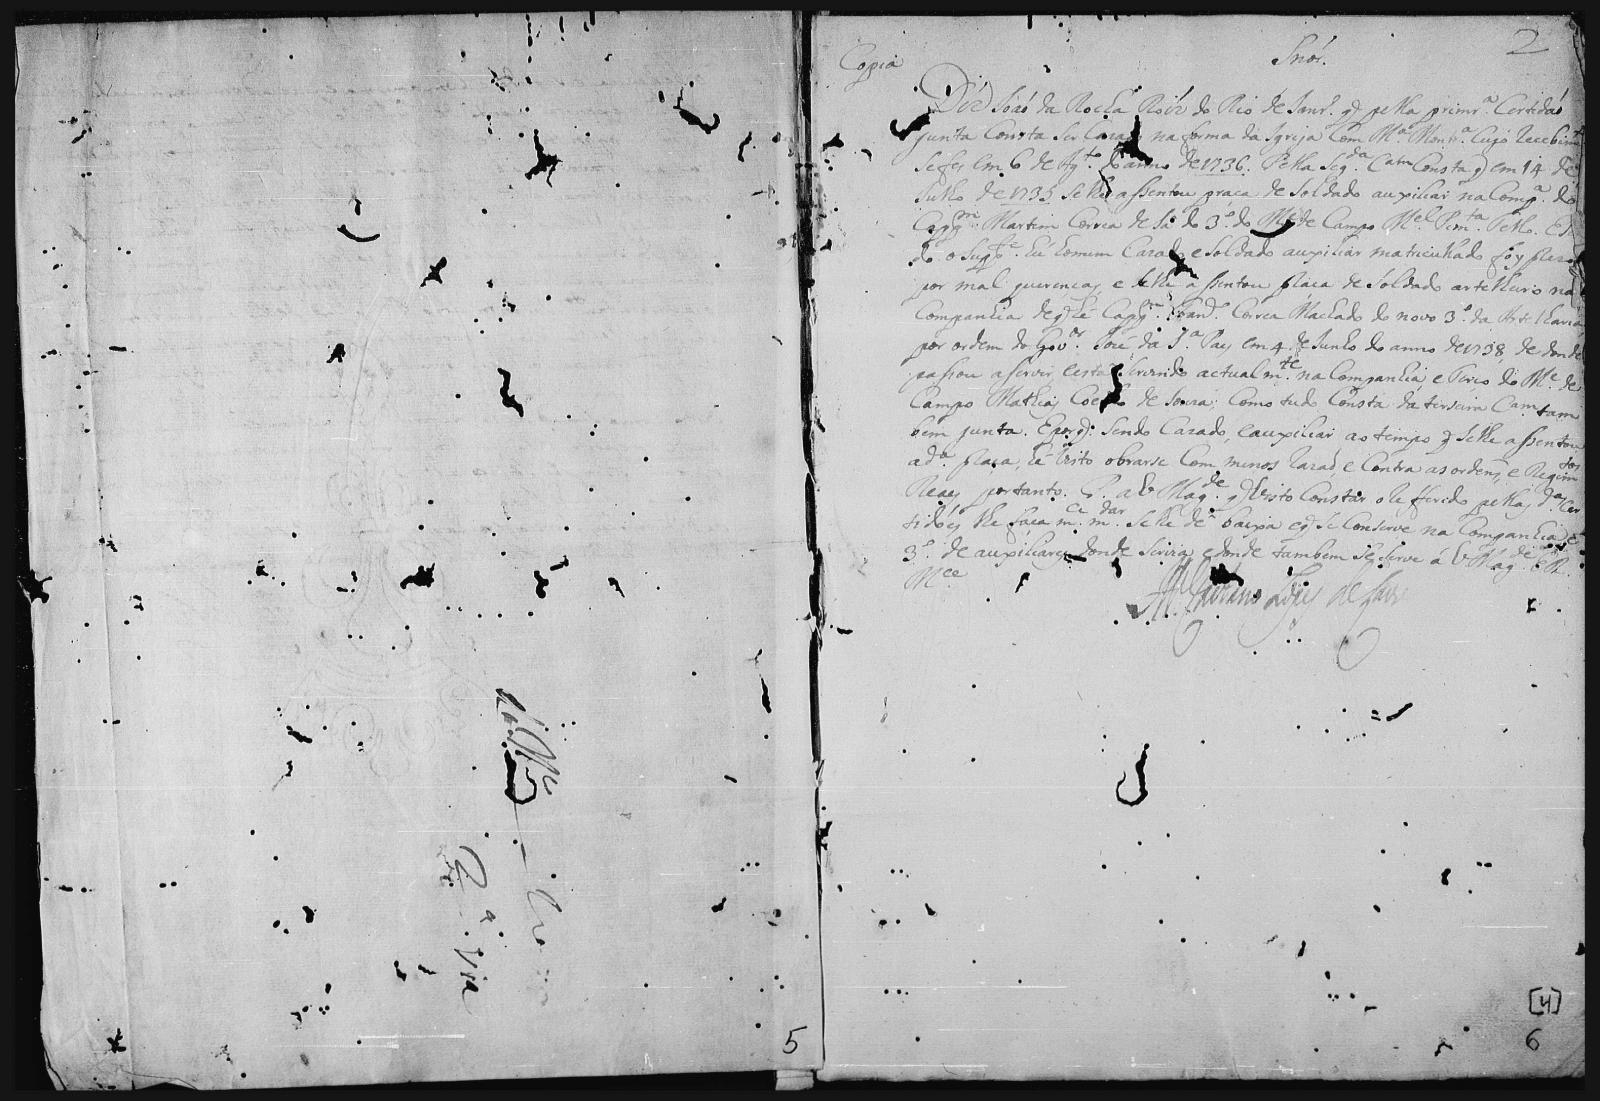 2.ª via
5
2
Copia
Snór.
Diz João da Rocha Roiz do Rio de Janr.º q̃ pella primr.ª Certidaõ
junta Consta ser Cazado na forma da Igreja Com M.ª Montr.ª Cujo Recebim.to
se fes em 6 de Ag.to do anno de 1736. Pella seg.da Cam Consta q̃ em 14 de
Julho de 1735 se lhe assentou praça de Soldado auxiliar na Comp.ª do
Capp.m Martim Correa de Sá do 3.º do M.e de Campo M.el Pim.ta Tello. E S.
do o Supp.e hú homem Cazado e soldado auxiliar matriculado foy prezo
por mal querenças e se lhe assentou praça de Soldado artelheiro na
Companhia de q̃ hé Capp.m Correa Machado do novo 3.º da Artelharia
por ordem do Gov.or José da S.ª Paes em 4 de Junho do anno de 1738, de donde
passou a servir, e está servindo actualm.te na Companhia e Terco do M.e de
Campo Mathias Coelho de Souza; Como tudo Consta da terseira Cam tam
bem junta. E por q̃ sendo Cazado, e auxiliar ao tempo q̃ se lhe assentou
a d.ª praça, hé visto obrarse Com menos Razaõ, e Contra as ordens, e Regim.tos
Reaes portanto. P. a V Mag.de q̃ visto Constar o Refferido pellas d.as Cer
tidoes lhe faça m.ce m.dar se lhe dé baixa e q̃ se Conserve na Companhia e
3.º de auxiliares donde servia, e donde tambem se serve á V Mag.de E R.
M.ce
M.el Caetano Lopes de Lavre
[4]
6